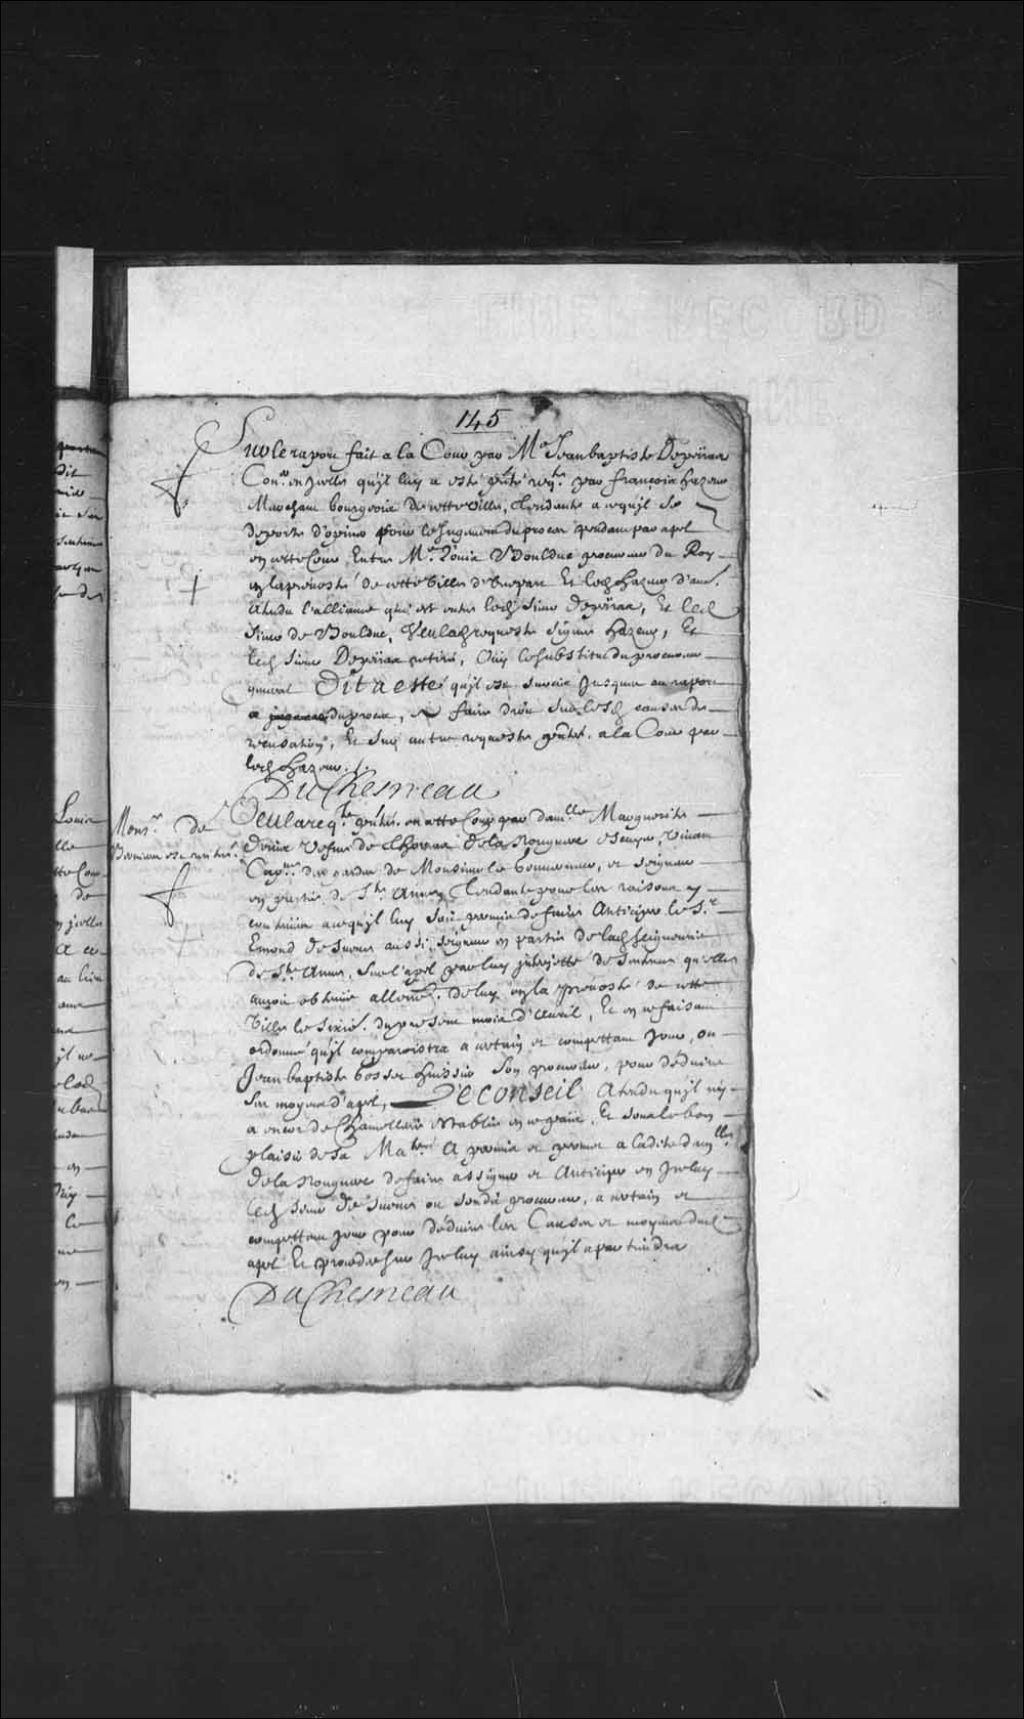 145
Sur le raport fait a la Cour par Me Jean baptiste Depeiras
Conr. en jcelle qu'jl luy a esté pnté reqte par francois hazeur
Marchant bourgeois de cette ville, Tendante a cequ'jl se
deporte d'opiner pour le Jugement du proces pendant par apel
en cette Cour, Entre Me Louis Boulduc procureur du Roy
en la preuosté de cette Ville d'vne part Et led hazeur d'aue.
Atendu l'alliance qui est entre led sieur depeiras, Et led
sieur de Boulduc, Veu lad requeste signée hazeur, Et
led sieur Depeiras retiré, Oüy le substitut du procureur
general Dit a esté qu'jl sera sursis Jusques au raport
a du proces, a faire droit sur lesd causes de
recusation, Et sur autre requeste pntée a la Cour par
led hazeur ./.
DuChesneau
Monsr. de
Bernieres est rentré
Veu la reqte pntée en cette Cour par damlle Marguerite
denis Vefue de Thomas de la Nouguere Escuyer, viuant
Capne des gardes de Monsieur le Gouuerneur, et seigneur
en partie de Ste Anne, Tendante pour les raisons y
contenües acequ'jl luy soit permis de faire Anticiper le Sr
Emond de Sueue aussi seigneur en partie de lad seigneurie
de Ste Anne, sur l'apel par luy jnterjetté de Sentence qu'elle
auroit obtenüe allencontre de luy en la preuosté de cette
Ville le sixie. du present mois d'Auril, Et en ce faisant
ordonné qu'jl comparoistra a certain et compettant jour, ou
Jean baptiste Gosset huissier son procureur, pour déduire
ses moyens d'apel, Le conseil Atendu qu'jl n'y
a encore de Chancellerie establie en ce païs, Et soubs le bon
plaisir de sa Maté A permis et permet a ladite damlle
de la Nouguere de faire assigner et Anticiper en jceluy
led sieur de Sueue ou sondit procureur, a certain et
compettant jour pour déduire les Causes et moyens dud
apel Et proceder sur jceluy ainsy qu'jl apartiendra
DuChesneau